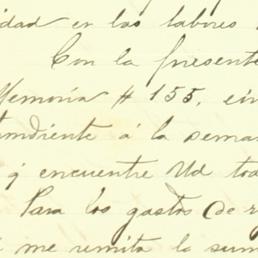 idad en las labores
Con la presente
Memoria # 155,
ndiente á la sema
q encuentre Ud tod
Para los gastos de r
me remita la sum